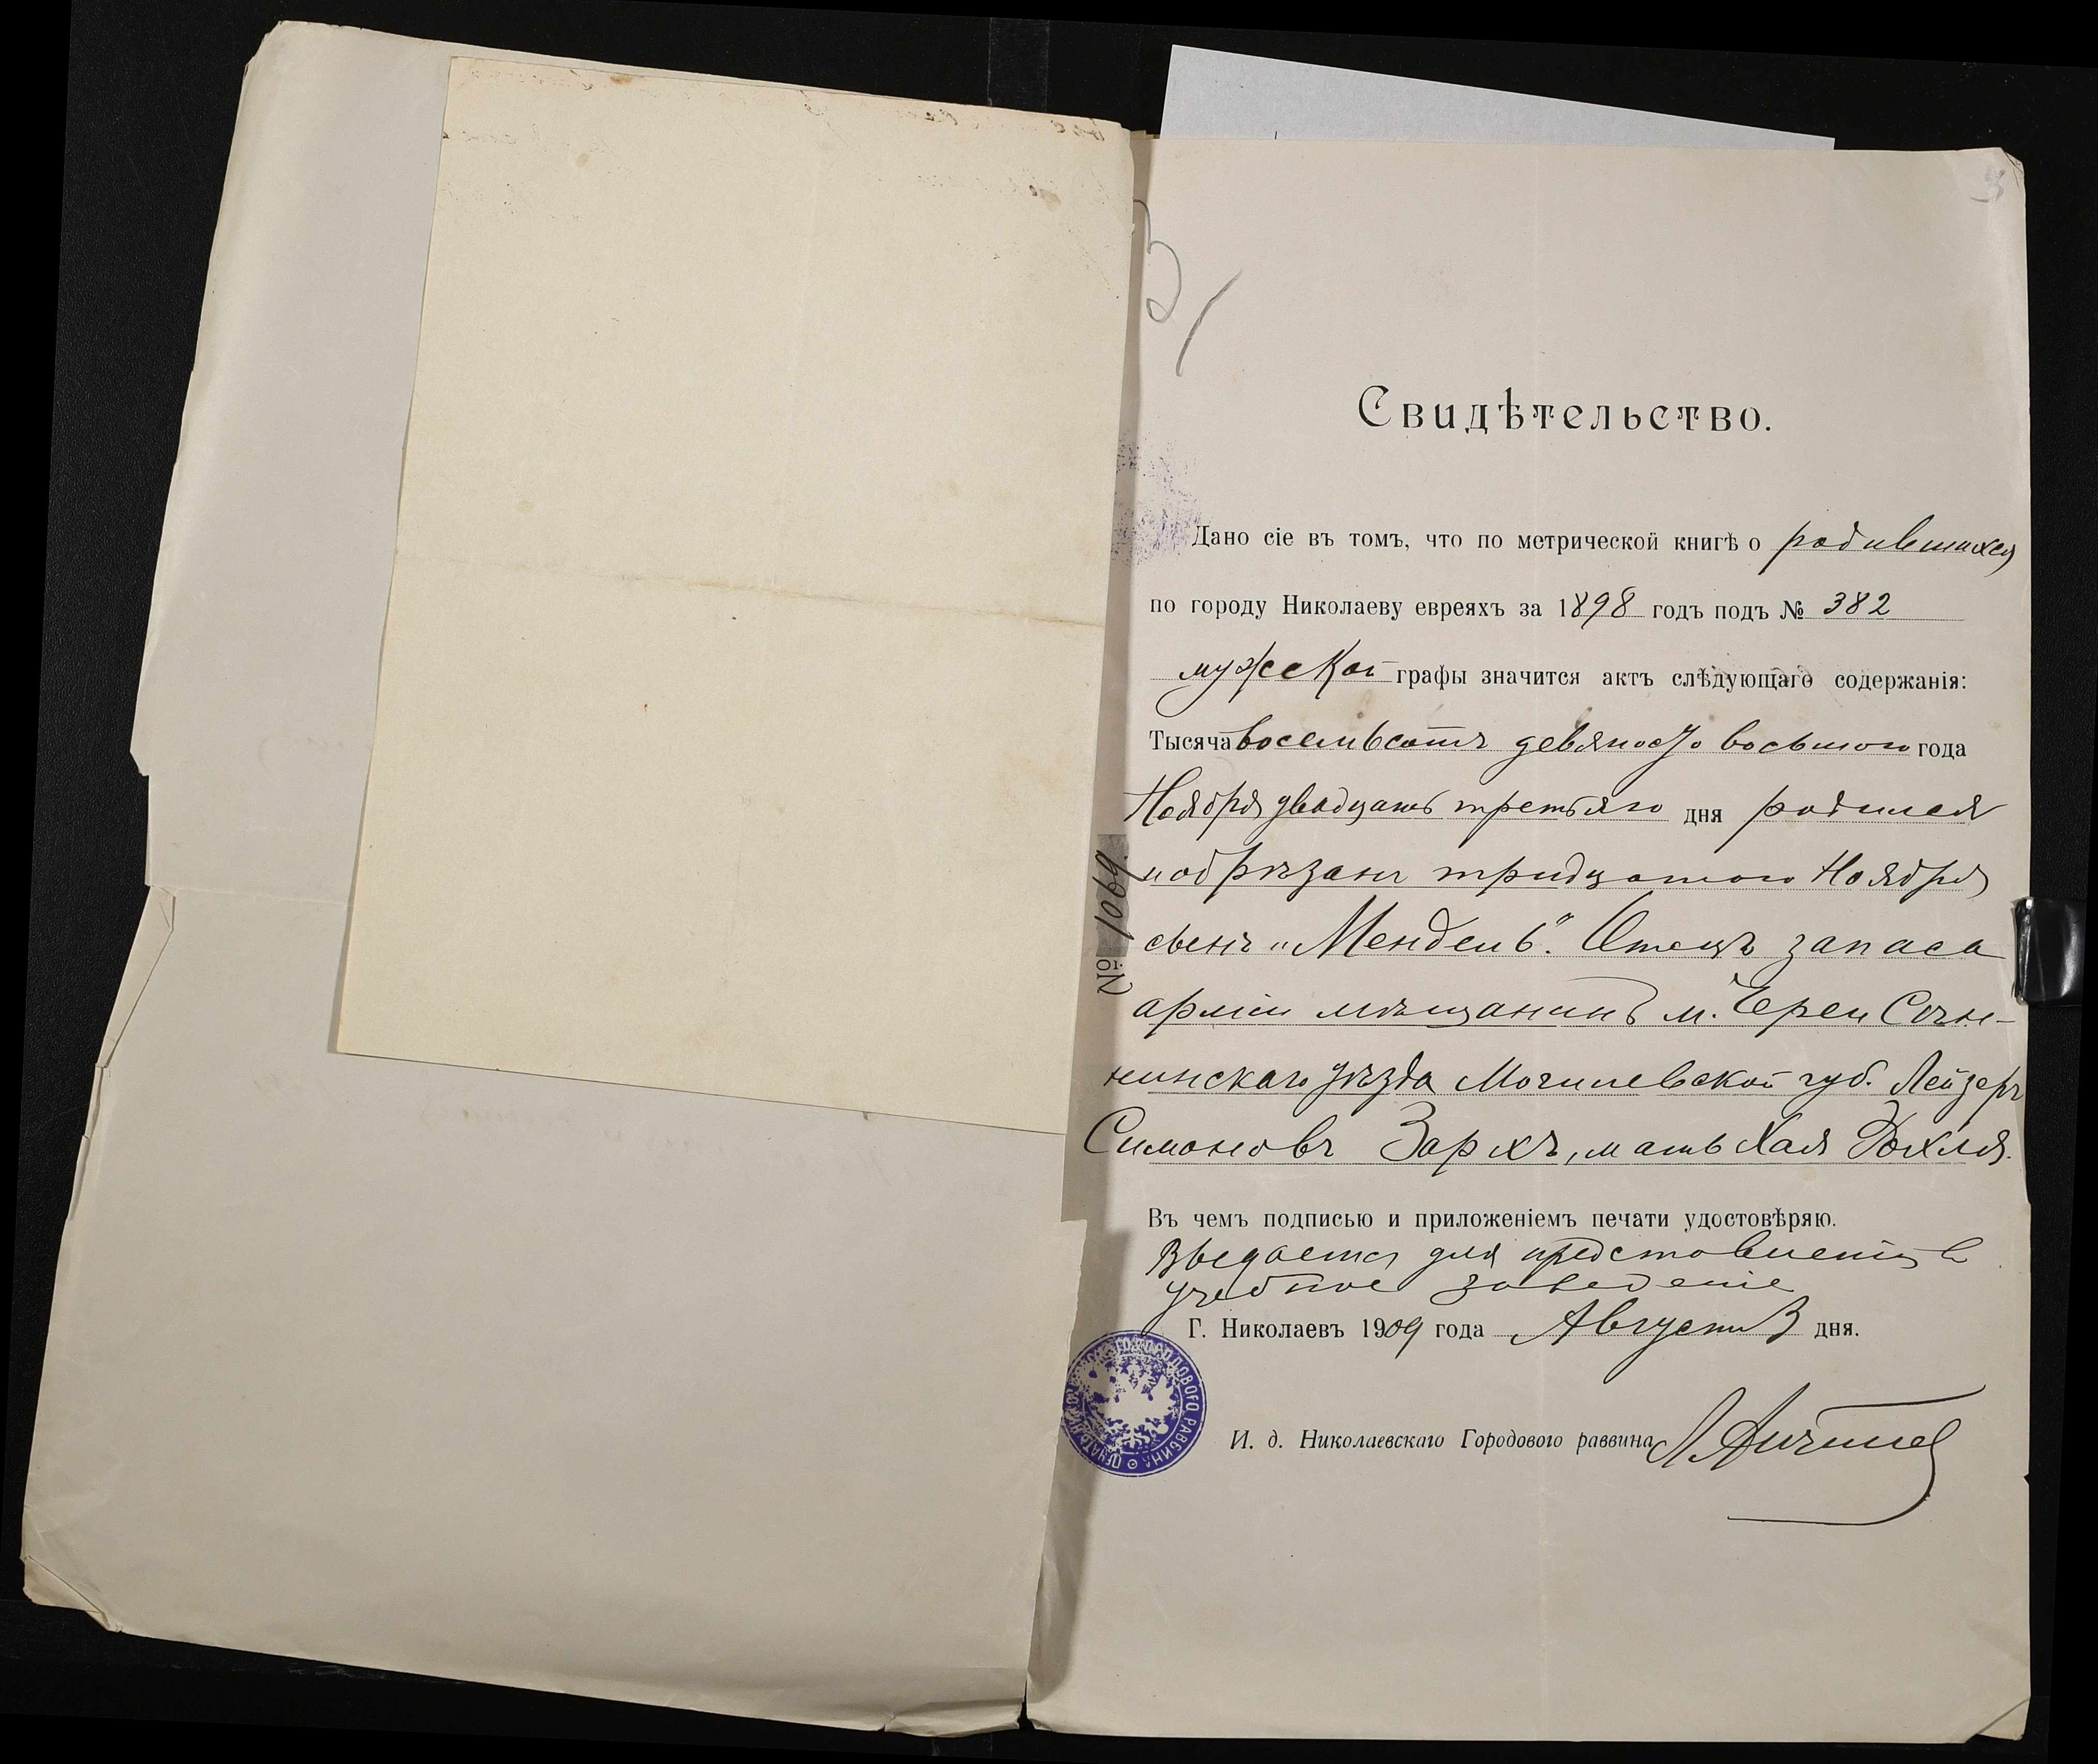 Свидѣтельство.
Дано сіе въ томъ, что по метрической книгѣ о родившихся
по городу Николаеву евреяхъ за 1898 годъ подъ № 382
мужской графы значится актъ слѣдующаго содержанія:
Тысяча восемьсотъ девяносто восьмого года
Ноября двадцать третьяго дня родился
и обрѣзанъ тридцатого Ноября
сынъ „Мендель". Отецъ запаса
арміи мѣщанинъ м. Череи Сѣн-
нинскаго уѣзда Могилевской губ. Лейзеръ
Симоновъ Зархъ, мать Хая Рохля.
Въ чемъ подписью и приложеніемъ печати удостовѣряю.
Выдается для представленія въ
учебное заведеніе
Г. Николаевъ 1909 года Августа 3 дня.
И. д. Николаевскаго Городового раввина
№ 1069.
ГОРОДОВОГО РАВВИНА